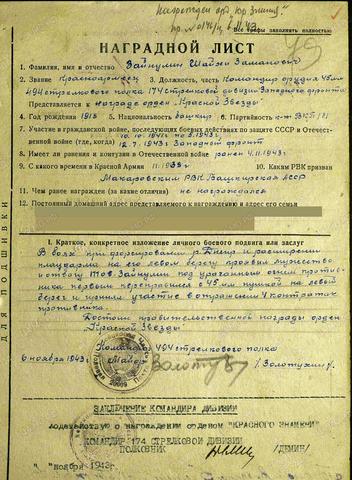 Награжден орд. Кр. Знамя
пр. № 
Все графы заполнять полностью
НАГРАДНОЙ ЛИСТ
1. Фамилия, имя и отчество Зайнулин Шайхи Заманович
2. Звание Красноармеец 3. Должность, часть Командир орудия 45 мм
494 стрелкового полка 174 стрелковой дивизии Западного фронта
Представляется к награде орден „Красной Звезды"
4. Год рождения 1918 5. Национальность башкир 6. Партийность к-т ВКП(б)
7. Участие в гражданской войне, последующих боевых действиях по защите СССР и Отечест-
венной войне (где, когда)
12.7.1943 Западной фронт
8. Имеет ли ранения и контузии в Отечественной войне ранен 4.11.1943г.
9. С какого времени в Красной Армии 11.1938г 10. Каким РВК призван
Макаровским РВК Башкирская АССР
11. Чем ранее награжден (за какие отличия) не награждался
12. Постоянный домашний адрес представляемого к награждению и адрес его семьи
I. Краткое, конкретное изложение личного боевого подвига или заслуг
В боях при форсировании р. Днепр и расширении
плацдарма на его левом берегу проявил мужество
и отвагу. Тов. Зайнулин под ураганным огнем против-
ника первым переправился с 45 мм пушкой на левый
берег и принял участие в отражении 4 контратак
противника.
Достоин правительственной награды орден
„Красной Звезды"
Командир 494 стрелкового полка
6 ноября 1943г Майор /Золотухин/
ЗАКЛЮЧЕНИЕ КОМАНДИРА ДИВИЗИИ
Ходатайствую о награждении орденом "КРАСНОГО ЗНАМЕНИ"
КОМАНДИР 174 СТРЕЛКОВОЙ ДИВИЗИИ
ПОЛКОВНИК /ДЕМИН/
" " ноября 1943г.
ДЛЯ ПОДШИВКИ